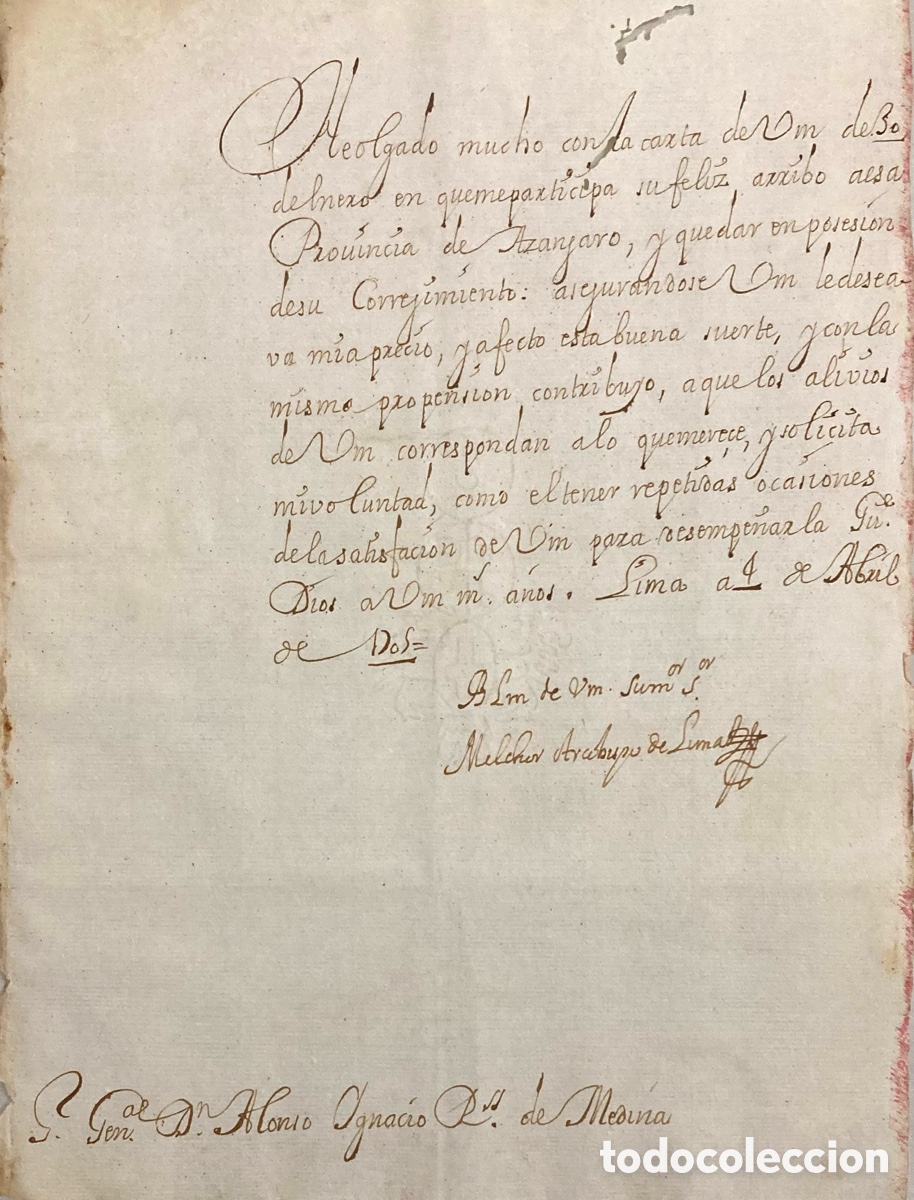 Heolgado mucho con la carta de Vm de 30
de henero en quemeparticipa su feliz arribo a esa
Provincia de Azangaro, y quedar en posesión
desu Correjimiento: asegurandose Vm ledesea-
va mi aprecio, y afecto esta buena suerte, y con la
misma propension contribuyo, a que los alivios
de Vm correspondan alo quemerece, y solicita
mi voluntad, como el tener repetidas ocasiones
delasatisfacion de Vm para desempeñarla Gu.e
Dios a Vm m.s años. Lima a 4 de Abril
de
BLm de Vm. sumor s.or
Melchor Arcobispo de Lima
S.r Gen.al Dn Alonso Ygnacio R.s de Medina
todocoleccion